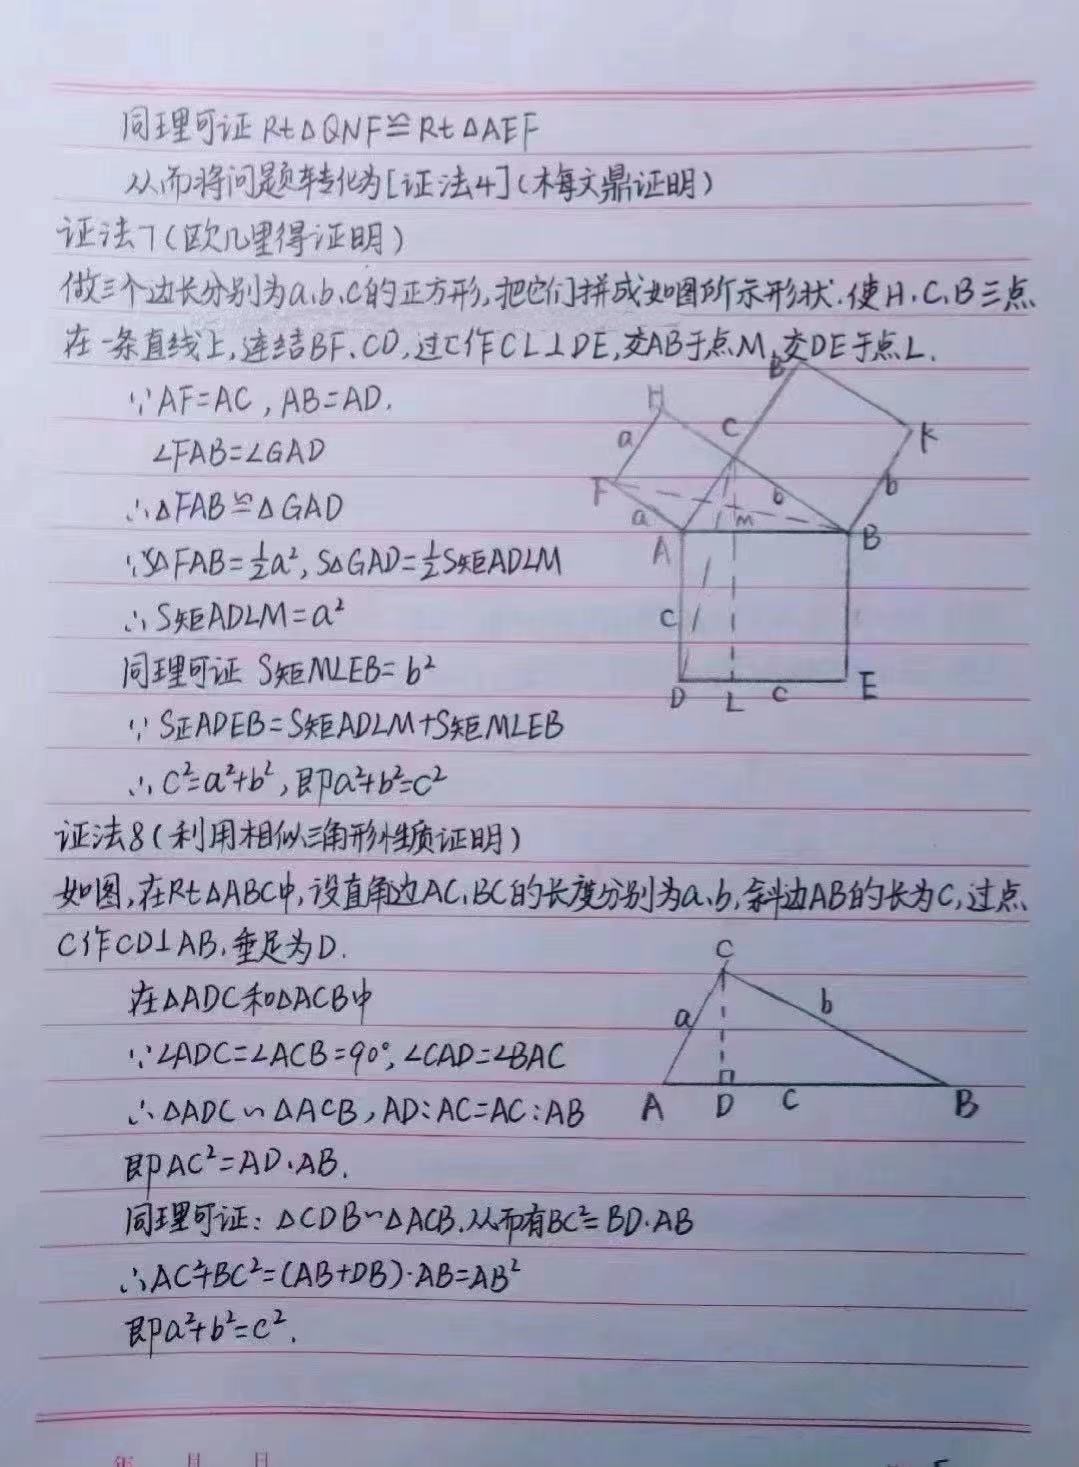 同理可证 Rt△QNF≌Rt△AEF
从而将问题转化为[证法4](梅文鼎证明)
证法7(欧几里得证明)
做三个边长分别为a、b、c的正方形,把它们拼成如图所示形状.使H、C、B三点
在一条直线上,连结BF、CD,过C作CL⊥DE,交AB于点M,交DE于点L.
∵AF=AC,AB=AD.
∠FAB=∠GAD
∴△FAB≌△GAD
∵S△FAB=½a²,S△GAD=½S矩ADLM
∴S矩ADLM=a²
同理可证 S矩MLEB=b²
∵S正ADEB=S矩ADLM+S矩MLEB
∴C²=a²+b²,即a²+b²=c²
H
C
K
a
F
b
b
a
M
A
B
C
D
L
C
E
证法8(利用相似三角形性质证明)
如图,在Rt△ABC中,设直角边AC、BC的长度分别为a、b,斜边AB的长为C,过点
C作CD⊥AB,垂足为D.
在△ADC和△ACB中
∵∠ADC=∠ACB=90°,∠CAD=∠BAC
∴△ADC∽△ACB,AD:AC=AC:AB
即AC²=AD·AB.
同理可证:△CDB∽△ACB.从而有BC²=BD·AB
∴AC²+BC²=(AB+DB)·AB=AB²
即a²+b²=c².
C
a
b
A
D
C
B
年 月 日